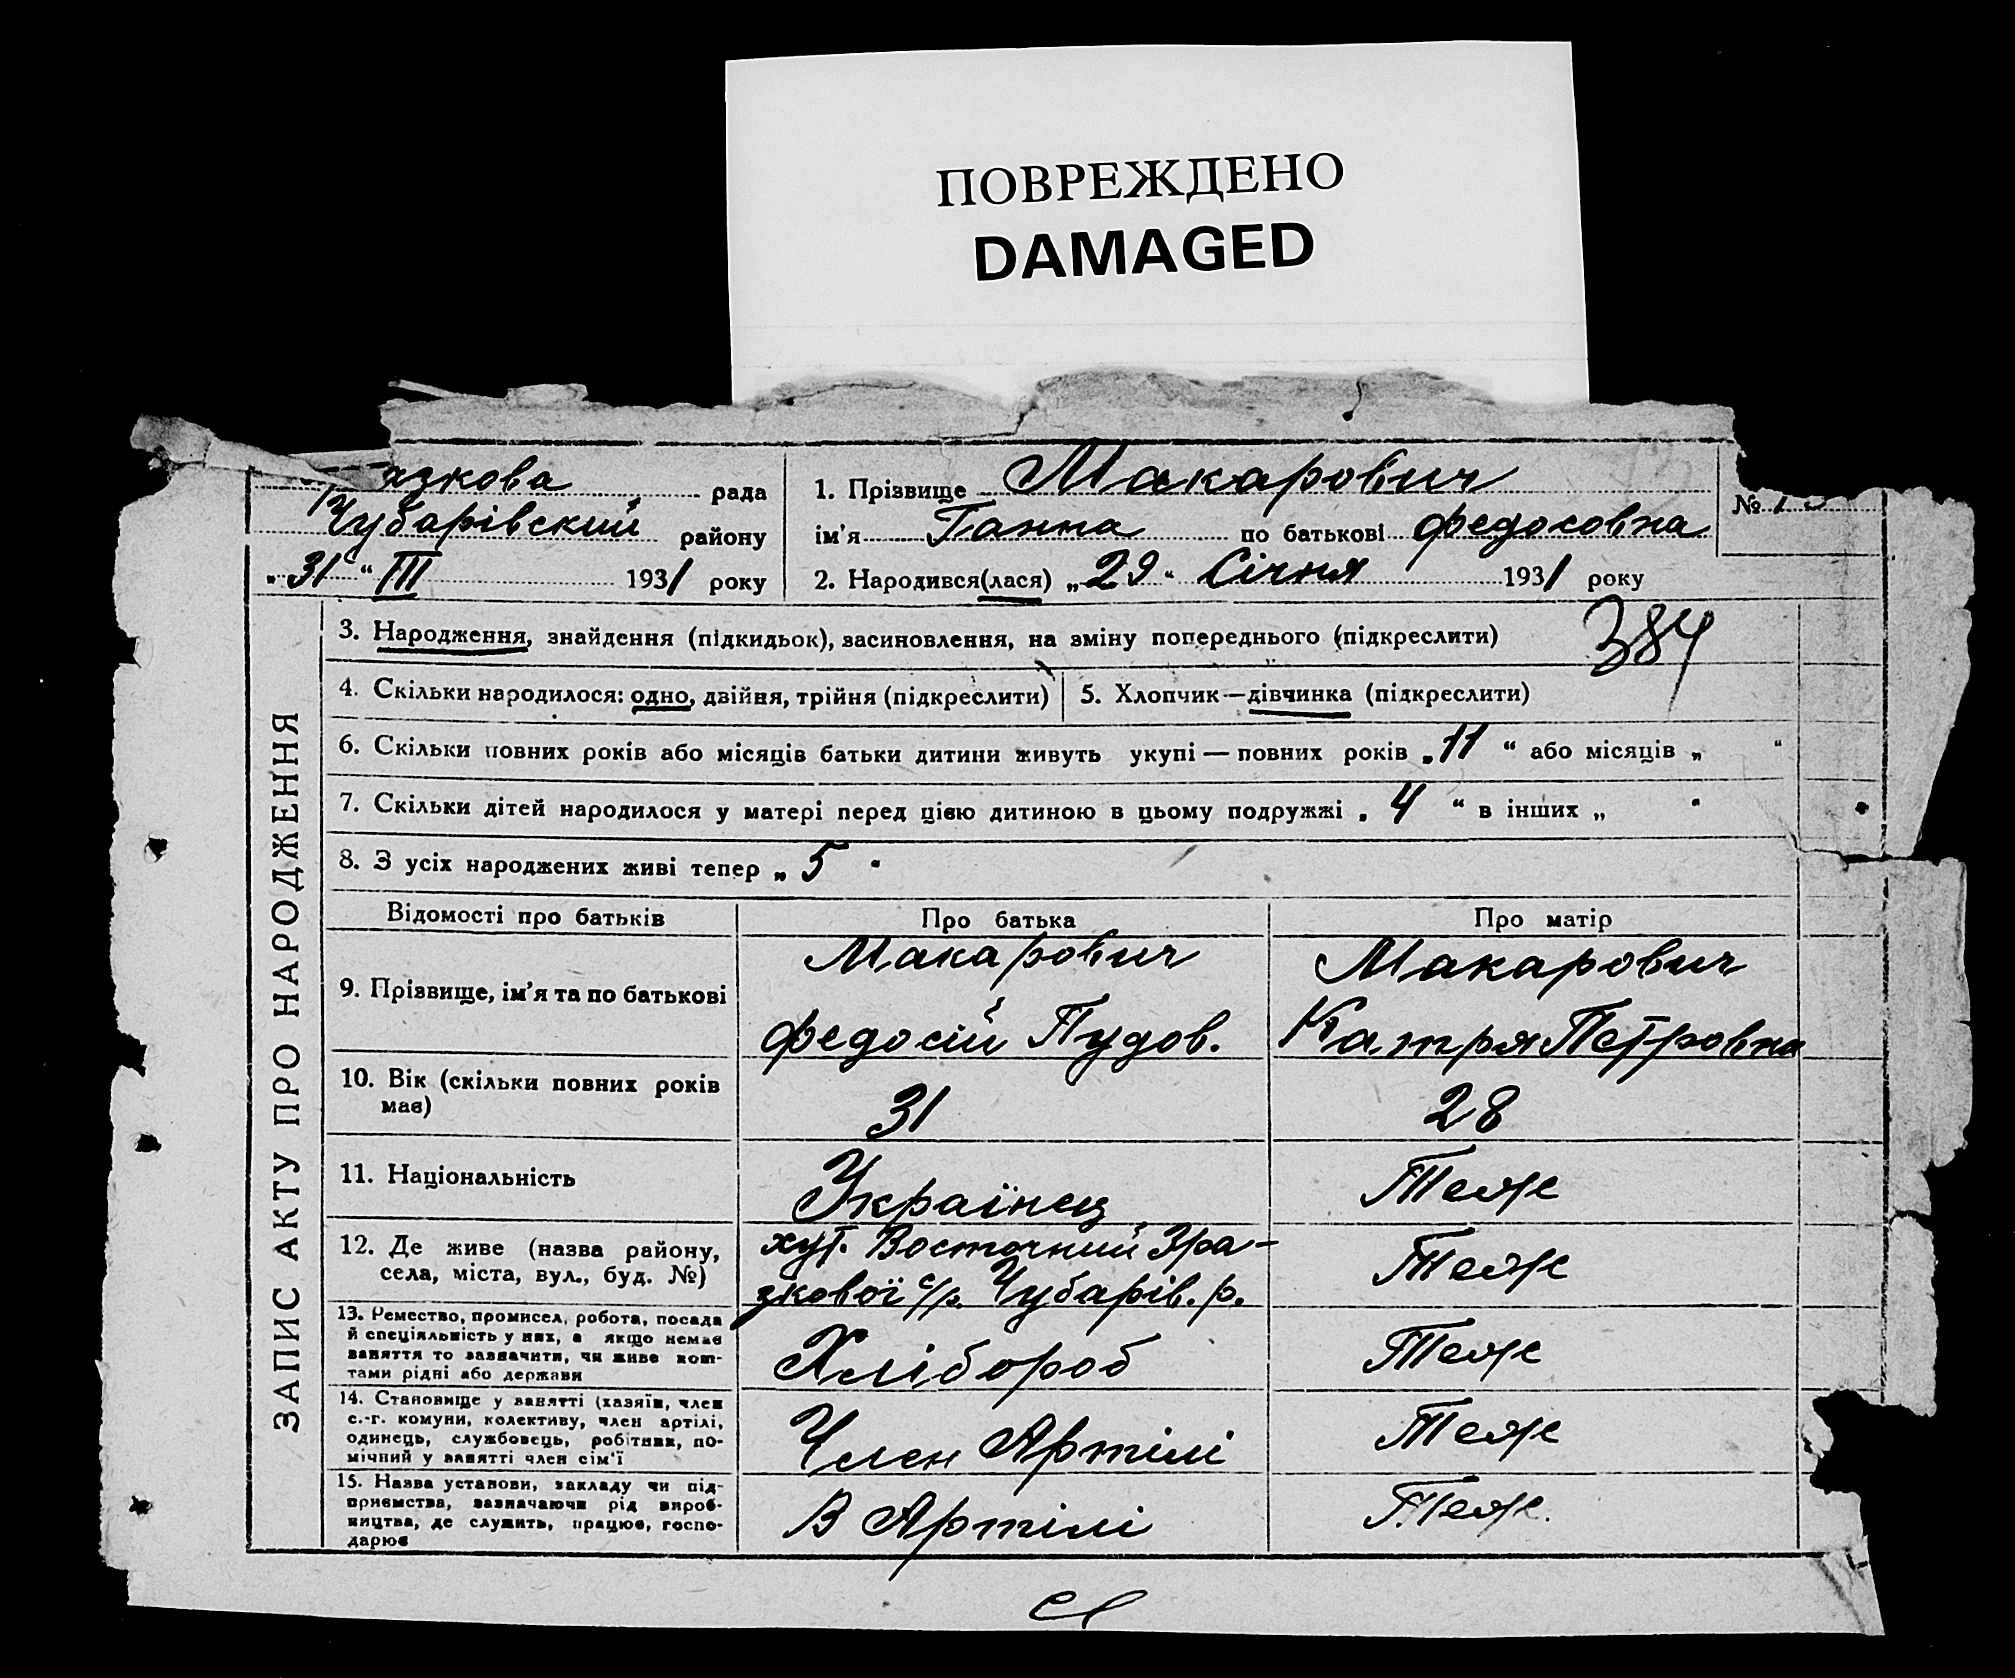 ПОВРЕЖДЕНО
DAMAGED
азкова рада
Чубарівский району
„ 31 “ III 1931 року
1. Прізвище Макарович
ім'я Ганна по батькові Федосовна
2. Народився(лася) „ 29 “ Січня 1931 року
№
ЗАПИС АКТУ ПРО НАРОДЖЕННЯ
3. Народження, знайдення (підкидьок), засиновлення, на зміну попереднього (підкреслити)
384
4. Скільки народилося: одно, двійня, трійня (підкреслити)
5. Хлопчик—дівчинка (підкреслити)
6. Скільки повних років або місяців батьки дитини живуть укупі — повних років „ 11 “ або місяців „ “
7. Скільки дітей народилося у матері перед цією дитиною в цьому подружжі „ 4 “ в інших „ “
8. З усіх народжених живі тепер „ 5 “
Відомості про батьків
Про батька
Про матір
9. Прізвище, ім'я та по батькові
Макарович
Федосій Пудов.
Макарович
Катря Петровна
10. Вік (скільки повних років
має)
31
28
11. Національність
Українец
Теж
12. Де живе (назва району,
села, міста, вул., буд. №)
хут. Восточний Зра-
зкової с/р. Чубарів. р.
Теж
13. Ремество, промисел, робота, посада
й спеціяльність у них, а якщо немає
заняття то зазначити, чи живе кош-
тами рідні або держави
Хлібороб
Теж
14. Становище у занятті (хазяїн, член
с.-г. комуни, колективу, член артілі,
одинець, службовець, робітник, по-
мічний у занятті член сім'ї
Член Артілі
Теж
15. Назва установи, закладу чи під-
приємства, зазначаючи рід вироб-
ництва, де служить, працює, госпо-
дарює
В Артілі
Теж.